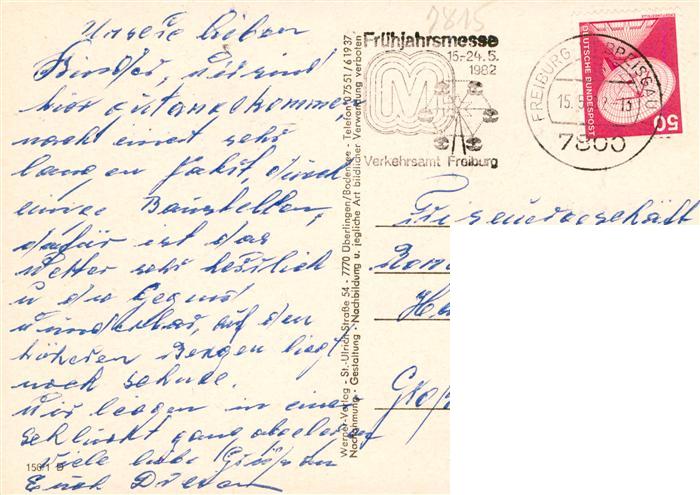 Unsere lieben
Kinder, wir sind
hier gut angekommen
nach einer sehr
langen Fahrt, durch
einige Baustellen,
dafür ist das
Wetter sehr
u die Gegend
wunderbar, auf den
höheren Bergen liegt
noch Schnee.
Wir liegen in einer
Schlucht ganz abgelegen
viele liebe Grüße an
Euch
150/1 B
Werner-Verlag - St.-Ulrich-Straße 54 - 7770 Überlingen/Bodensee - Telefon 07551/61937
Nachahmung - Gestaltung - Nachbildung u. jegliche Art bildlicher Verwendung verboten
7815
Frühjahrsmesse
15.-24. 5.
1982
M
Verkehrsamt Freiburg
FREIBURG BREISGAU
15.
7800
DEUTSCHE BUNDESPOST
50
Friseurgeschäft